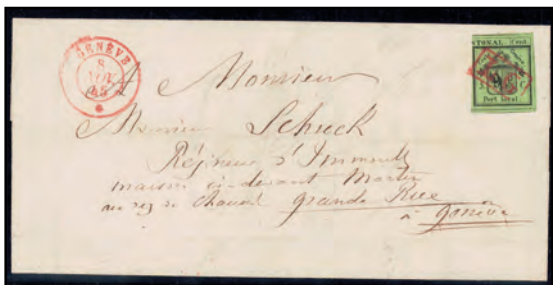 GENÈVE
8
NOV
45
TONAL. 5 Cent.
Port local.
A Monsieur
Monsieur Schuck
Régisseur d'Immeuble
maison ci-devant Martin
au rez de chaussé grande Rue
à Genève